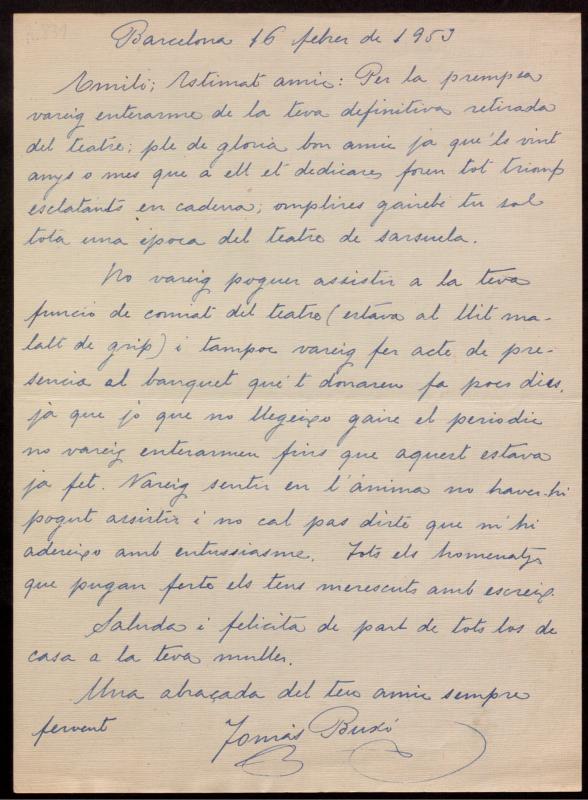 Barcelona 16 febrer de 1953
Emili; Estimat amic: Per la prempsa
vareig enterarme de la teva definitiva retirada
del teatre; ple de gloria bon amic ja que'ls vint
anys o mes que a ell et dedicares foren tot trionps
esclatants en cadena; omplires gairebé tu sol
tota una época del teatre de sarsuela.
No vareig poguer assistir a la teva
funció de comiat del teatre (estava al llit ma-
lalt de grip) i tampoc vareig fer acte de pre-
sencia al banquet que't donaren fa pocs dies,
ja que jo que no llegeixo gaire el periodic
no vareig enterarmen fins que aquest estava
ja fet. Vareig sentir en l'ánima no haver-hi
pogut assistir i no cal pas dirte que m'hi
adereixo amb entussiasme. Tots els homenatges
que pugan ferte els tens merescuts amb escreix.
Saluda i felicita de part de tots los de
casa a la teva muller.
Una abraçada del teu amic sempre
fervent
Tomás Buxó